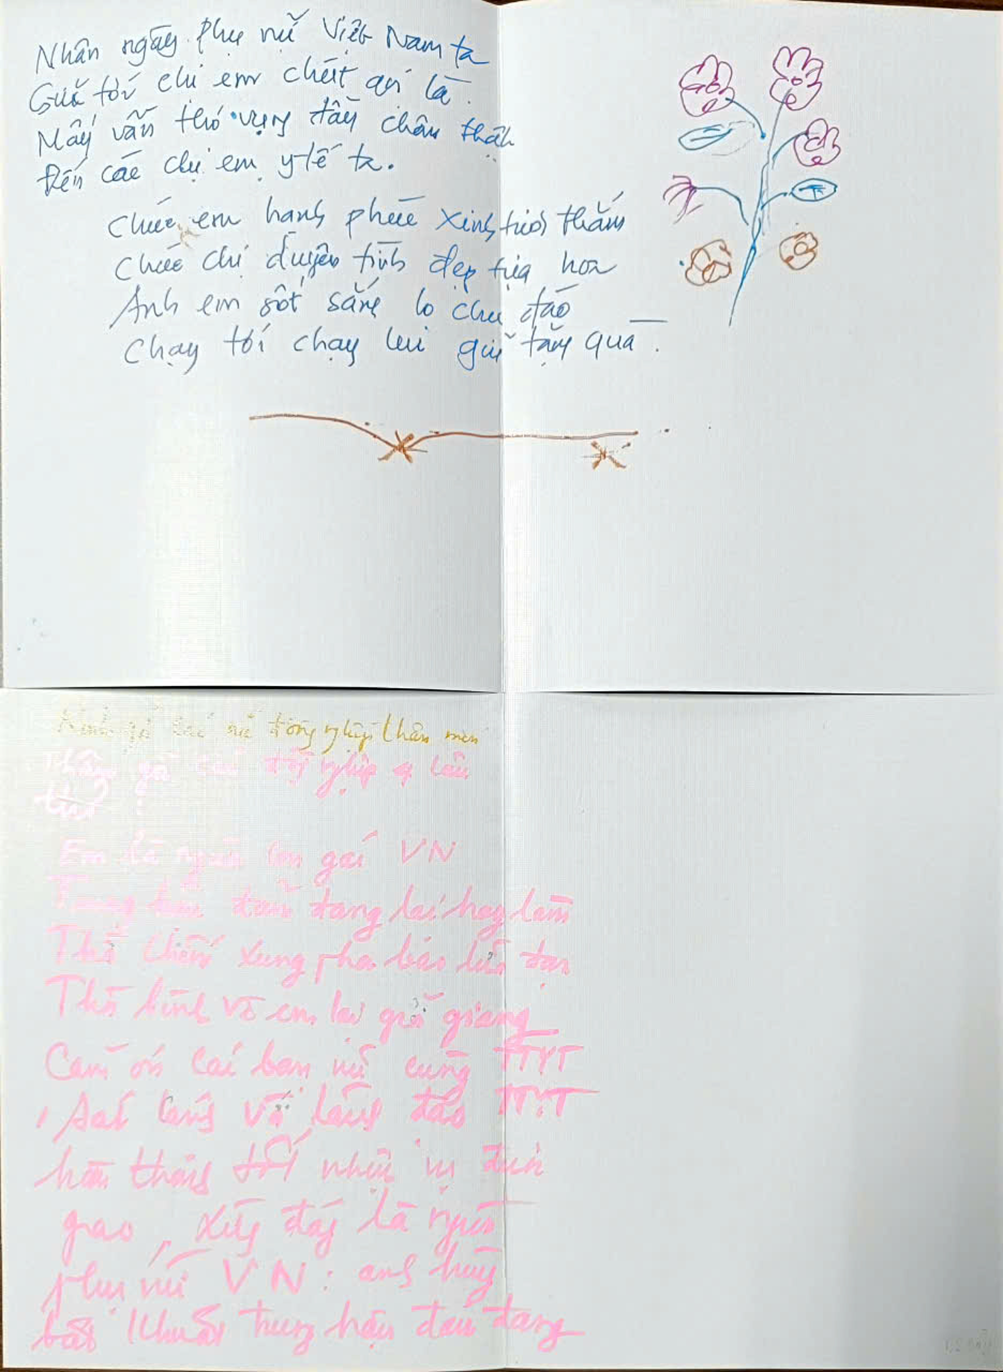 Nhân ngày phụ nữ Việt Nam ta
Gửi tới chị em chút gọi là.
Mấy vần thơ vụng đầy chân thật
Đến các chị em y tế ta.
Chúc em hạnh phúc xinh tươi thắm
Chúc chị duyên tình đẹp tựa hoa
Anh em sốt sắng lo chu đáo
Chạy tới chạy lui gửi tặng quà.
Kính gửi các nữ đồng nghiệp thân mến
Thân gửi các đồng nghiệp
Em là người con gái VN
Trung hậu đảm đang lại hay làm
Thời chiến xung pha bao lửa đạn
Thời bình về em lại giỏi giang
Cám ơn các bạn nữ cùng TTYT
sát cánh với lãnh đạo TTYT
hoàn thành tốt nhiệm vụ được
giao, xứng đáng là người
phụ nữ VN: anh hùng
bất khuất trung hậu đảm đang